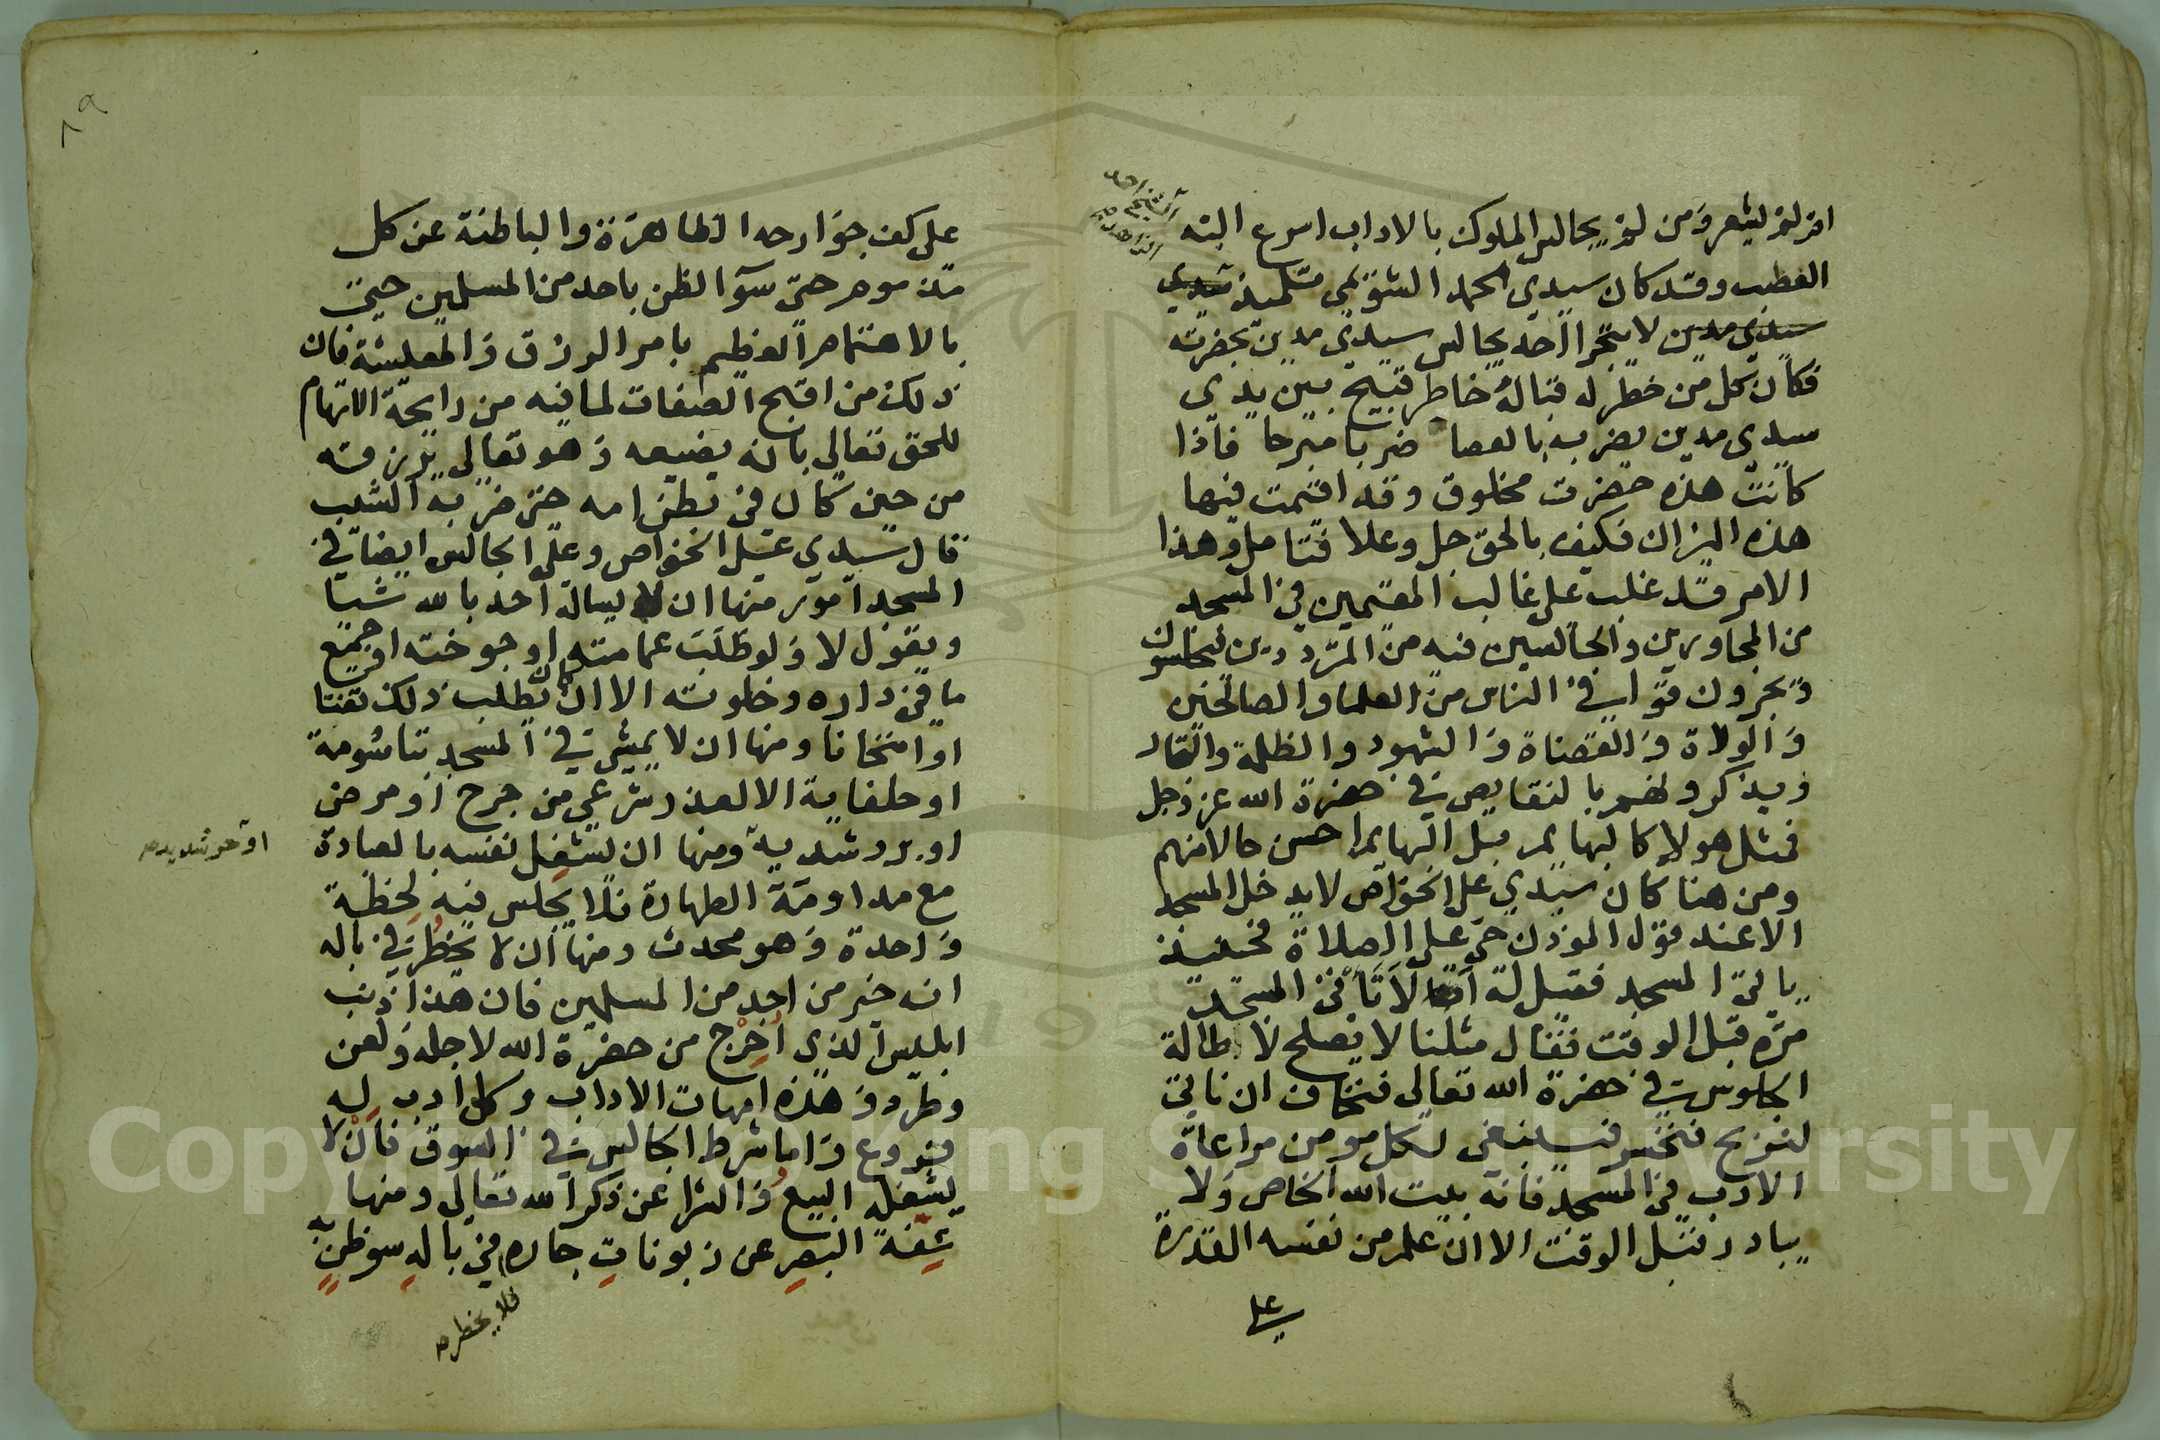 ام لم يشعر ومن لم يجالس الملوك بالاداب اسرع اليه
الشيخ احمد
الزاهد صح
العطب وقد كان سيدي محمد الشويمي تلميذ سيدي
سيدي مدين لا يتجرا احد يجالس سيدي مدين بحضرته
فكان كل من خطر له فباله خاطر قبيح بين يدي
سيدي مدين يضربه بالعصا ضربا مبرحا فاذا
كانت هذه حضرت مخلوق وقد اقيمت فيها
هذه الميزان فكيف بالحق جل وعلا فتامل وهذا
الامر قد غلب على غالب المقيمين في المسجد
من المجاورين والجالسين فيه من المترددين فيجلسون
ويجرون قوافي الناس من العلما والصالحين
والولاة والقضاة والشهود والظلمة والتجار
ويذكرونهم بالنقايص في حضرة الله عز وجل
فمثل هولاء كالبهايم بل البهايم احسن حالا منهم
ومن هنا كان سيدي علي الخواص لا يدخل المسجد
الا عند قول الموذن حي على الصلاة فحينيذ
ياتي المسجد فقيل له لا تاتي المسجد
مرة قبل الوقت فقال مثلنا لا يصلح لاطالة
الجلوس في حضرة الله تعالى فنخاف ان ناتي
لنربح فنخسر فينبغي لكل مومن مراعاة
الادب في المسجد فانه بيت الله الخاص ولا
يبادر قبل الوقت الا ان علم من نفسه القدرة
على
٨٩
على كف جوارحه الظاهرة والباطنة عن كل
مذموم حتى سوء الظن باحد من المسلمين حتى
بالاهتمام العظيم بامر الرزق والمعيشة فان
ذلك من اقبح الصفات لما فيه من رايحة الاتهام
للحق تعالى بانه يضيعه وهو تعالى يرزقه
من حين كان في بطن امه حتى ضربه الشيب
قال سيدي علي الخواص وعلى الجالس ايضا في
المسجد امور منها ان لا يساله احد بالله شيا
ويقول لا ولو طلب عمامته او جوخته او جميع
ما في داره وخلوته الا ان كان يطلب ذلك تعنتا
او امتحانا ومنها ان لا يمشي في المسجد بتاسومة
او حلفاية الا لعذر شرعي من جرح او مرض
او برد شديد ومنها ان يشغل نفسه بالعبادة
او حر شديد صح
مع مداومة الطهارة فلا يجلس فيه لحظة
واحدة وهو محدث ومنها ان لا يخطر في باله
انه خير من احد من المسلمين فان هذا ذنب
ابليس الذي اُخرج من حضرة الله لاجله ولعن
وطرد وهذه امهات الاداب وكل ادب له
فروع واما شرط الجالس في السوق فان لا
يشغله البيع والشرا عن ذكر الله تعالى ومنها
عفة البصر عن زبونات جاره في باله سوظن به
فلا يخطر صح